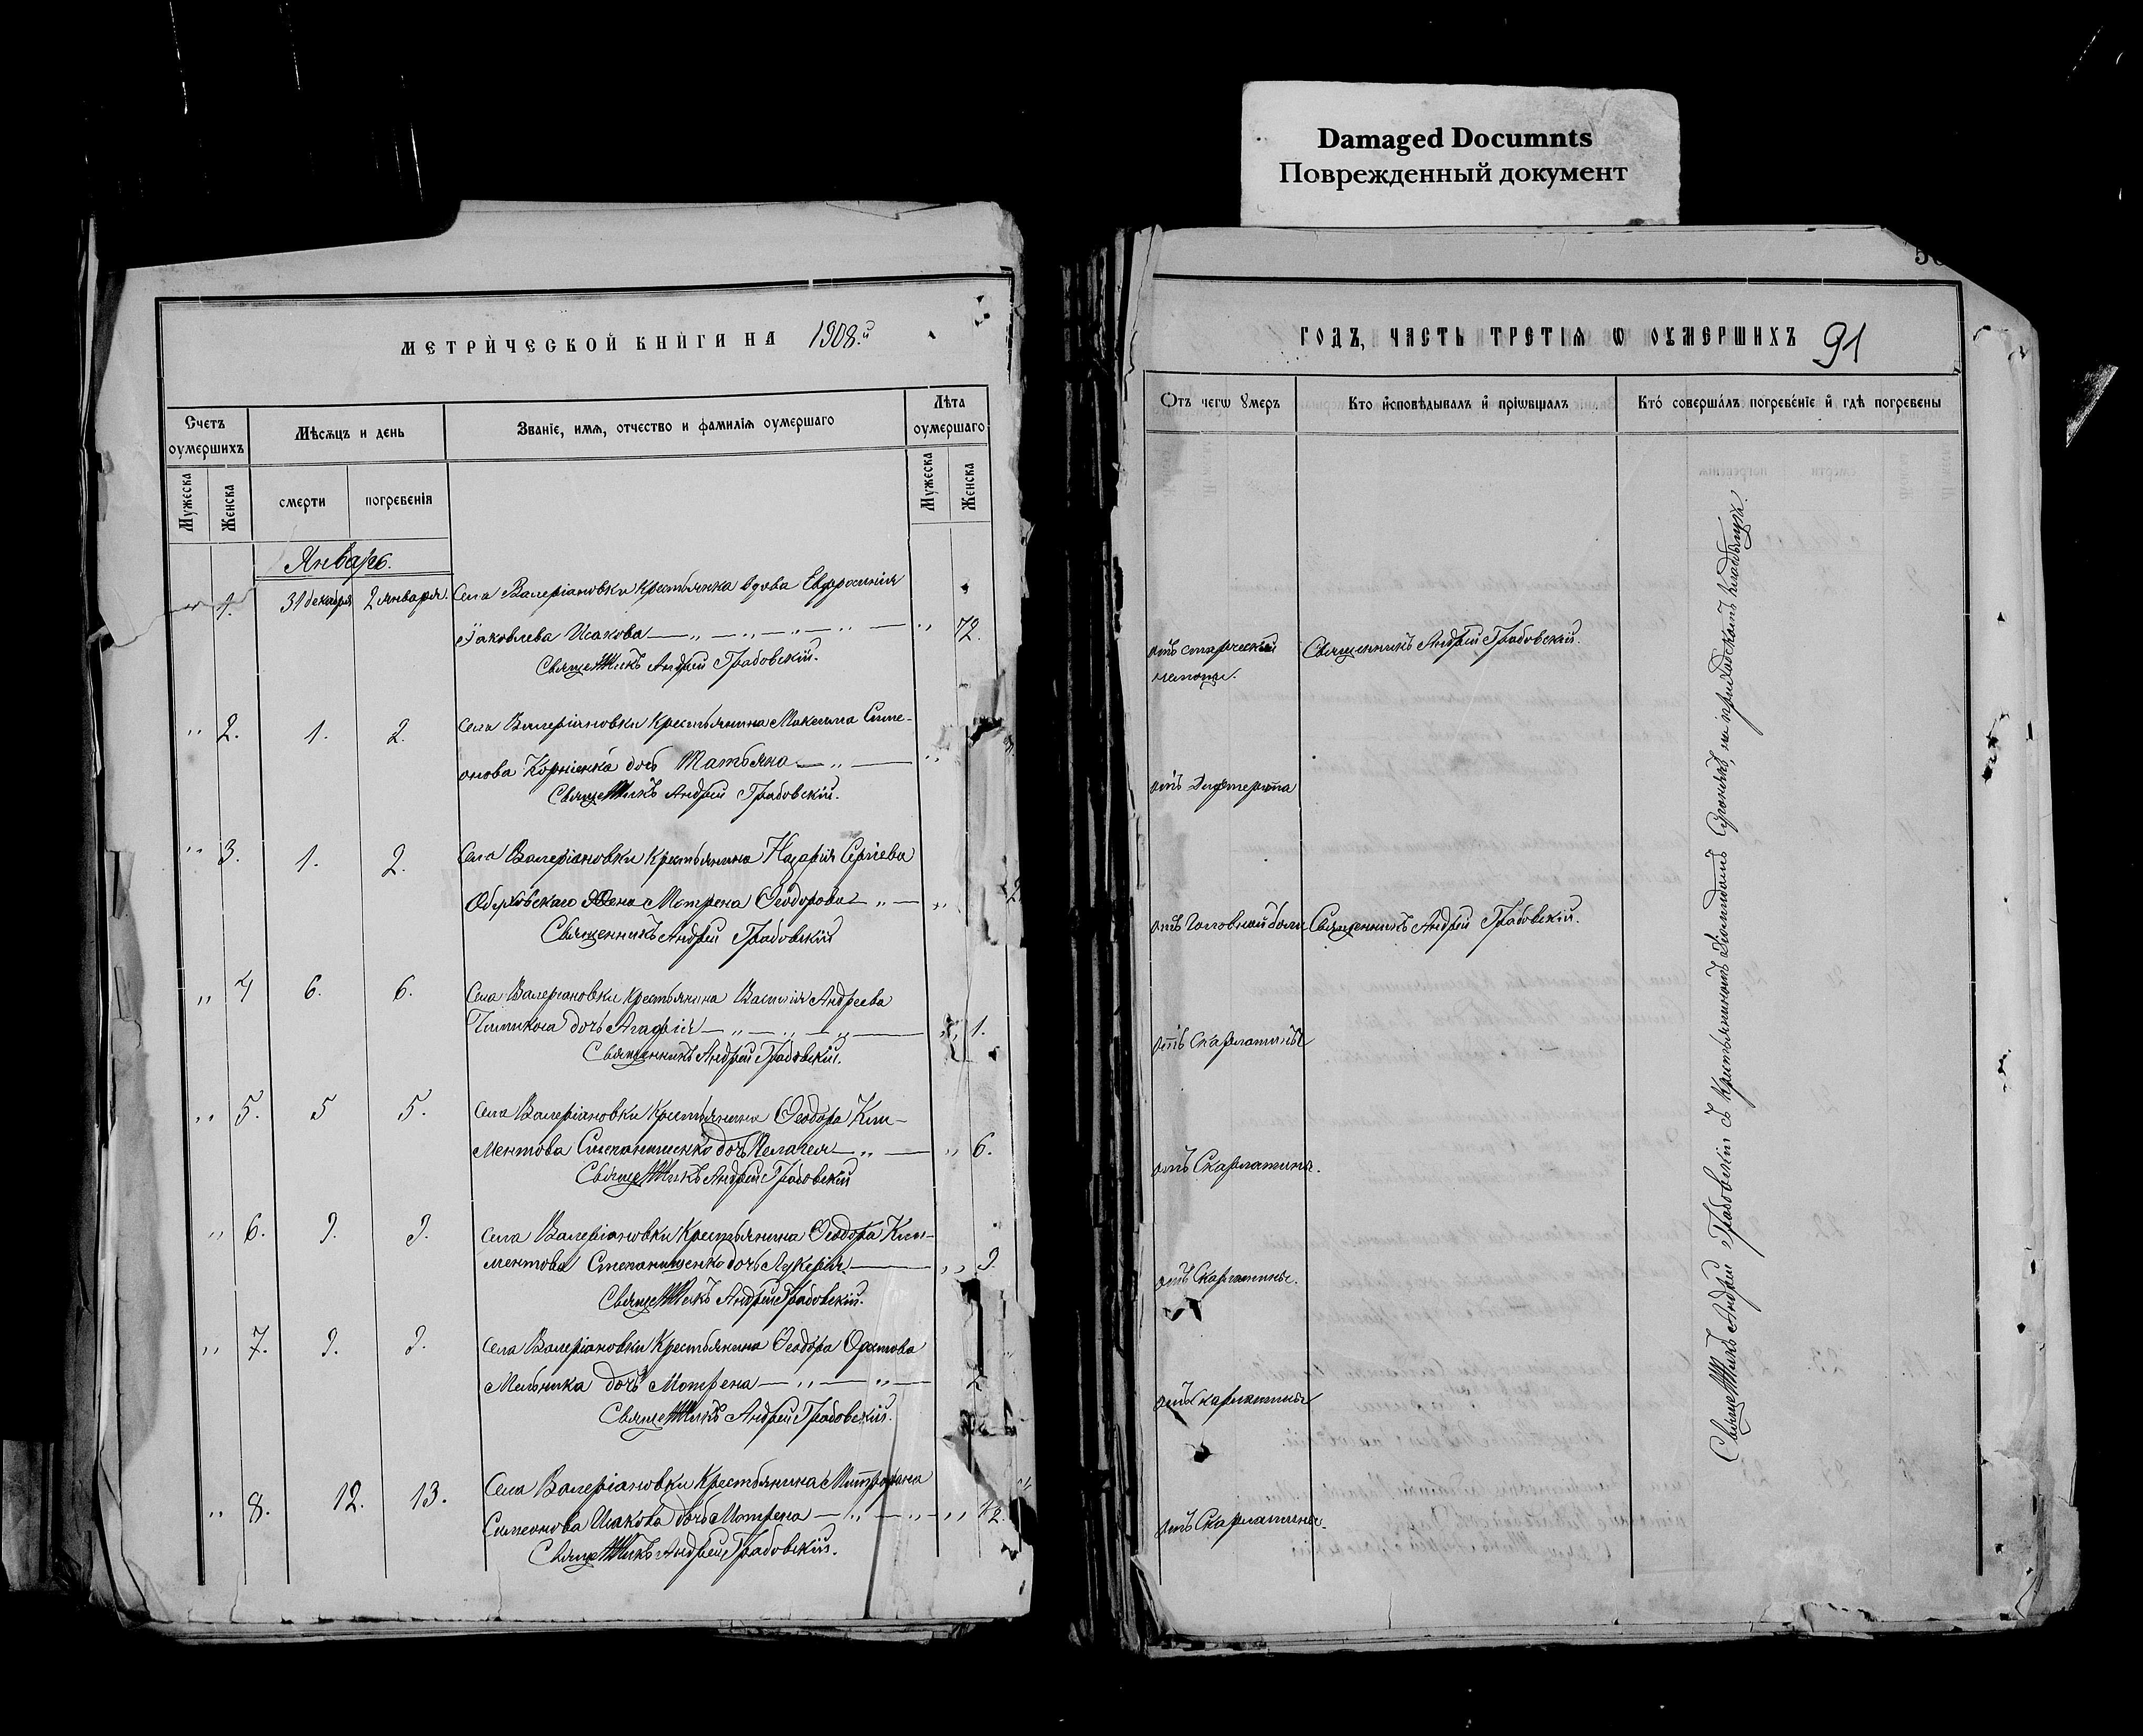 Damaged Documnts
Поврежденный документ
МЕТРИЧЕСКОЙ КНИГИ НА 1908.й
Счетъ оумершихъ
Мѣсяцъ и день
Званіе, имя, отчество и фамилія оумершаго
Лѣта оумершаго
Мужеска
Женска
смерти
погребенія
Мужеска
Женска
Январь.
" 1. 31 декабря 2 января. Села Валеріановки крестьянка вдова Евфросинія
Іаковлева Исакова — " — " — " — " — " 72.
Священникъ Андрей Грабовскій.
" 2. 1. 2. Села Валеріановки крестьянина Максима Симе-
онова Корніенка дочь Татьяна — " — "
Священникъ Андрей Грабовскій.
" 3. 1. 2. Села Валеріановки крестьянина Назарія Сергіева
жена Мотрена Ѳеодорова — " — "
Священникъ Андрей Грабовскій
" 4 6. 6. Села Валеріановки крестьянина Василія Андреева
дочь Агафія — " — " — " — " 1.
Священникъ Андрей Грабовскій.
" 5. 5 5. Села Валеріановки крестьянина Ѳеодора Кли-
ментова Степанишенко дочь Пелагея — " — " 6.
Священникъ Андрей Грабовскій
" 6. 9. 9. Села Валеріановки Крестьянина Ѳеодора Кли-
ментова Степанишенко дочь Лукерія — " " 9.
Священникъ Андрей Грабовскій.
" 7. 9. 9. Села Валеріановки Крестьянина Ѳеодора
Мельника дочь Мотрена — " — " — 2
Священникъ Андрей Грабовскій.
" 8. 12. 13. Села Валеріановки Крестьянина Митрофана
Симеонова Исакова дочь Мотрена — " — " — " "
Священникъ Андрей Грабовскій.
ГОДЪ, ЧАСТЬ ТРЕТІЯ Ѡ ОУМЕРШИХЪ 91
Ѿтъ чегѡ ᲂумеръ
Кто исповѣдывалъ и пріѡбщалъ
Кто совершалъ погребеніе и гдѣ погребены
отъ старческой Священникъ Андрей Грабовскій.
немощи.
отъ Дифтерита
отъ Головной боли Священникъ Андрей Грабовскій.
отъ Скарлатины
отъ Скарлатины.
отъ Скарлатины.
отъ скарлатины
отъ Скарлатины.
Священникъ Андрей Грабовскій съ Крестьяниномъ на приходскомъ кладбищѣ.